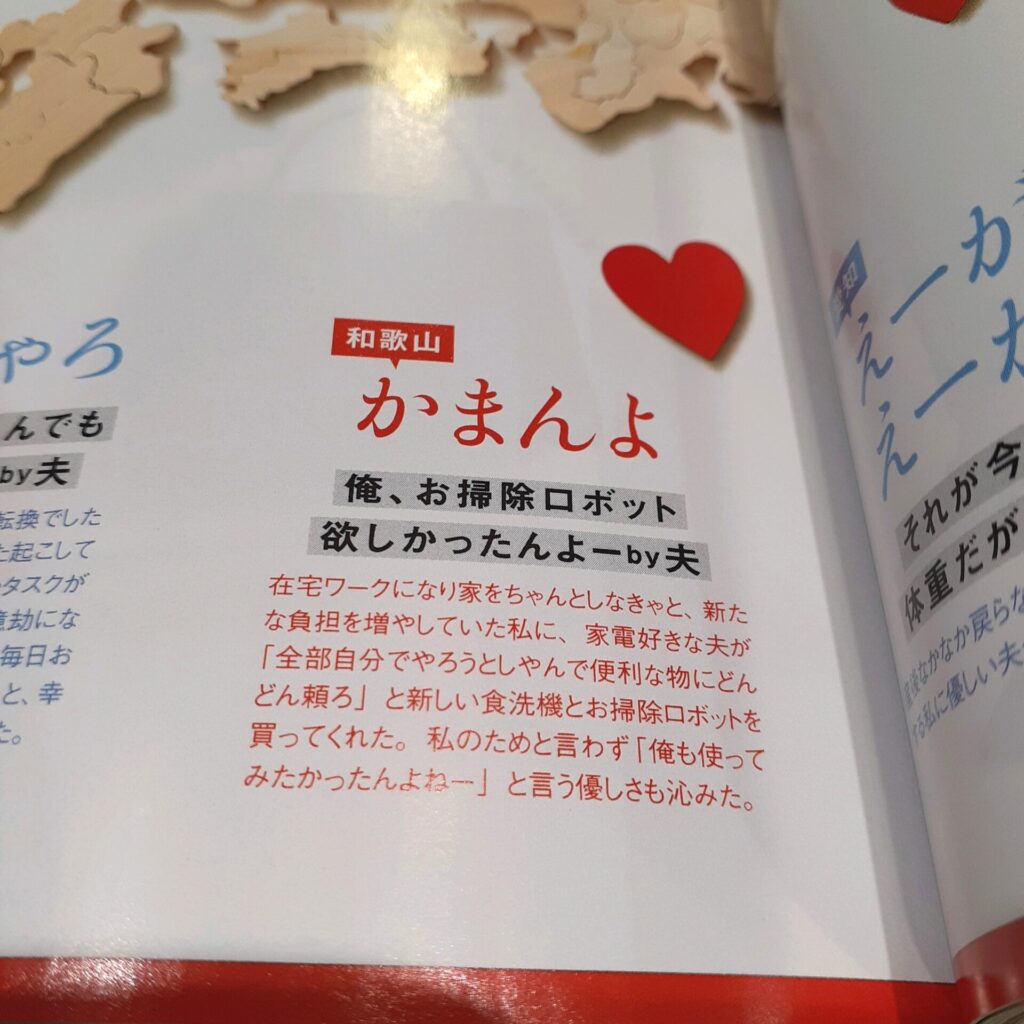 やろ
んでも
by夫
転換でした
起こして
タスクが
億劫にな
毎日お
と、幸
た。
和歌山
かまんよ
俺、お掃除ロボット
欲しかったんよーby夫
在宅ワークになり家をちゃんとしなきゃと、新た
な負担を増やしていた私に、家電好きな夫が
「全部自分でやろうとしやんで便利な物にどん
どん頼ろ」と新しい食洗機とお掃除ロボットを
買ってくれた。私のためと言わず「俺も使って
みたかったんよねー」と言う優しさも沁みた。
えーか
えーか
それが今
体重だが
産後なかなか戻らな
する私に優しい夫